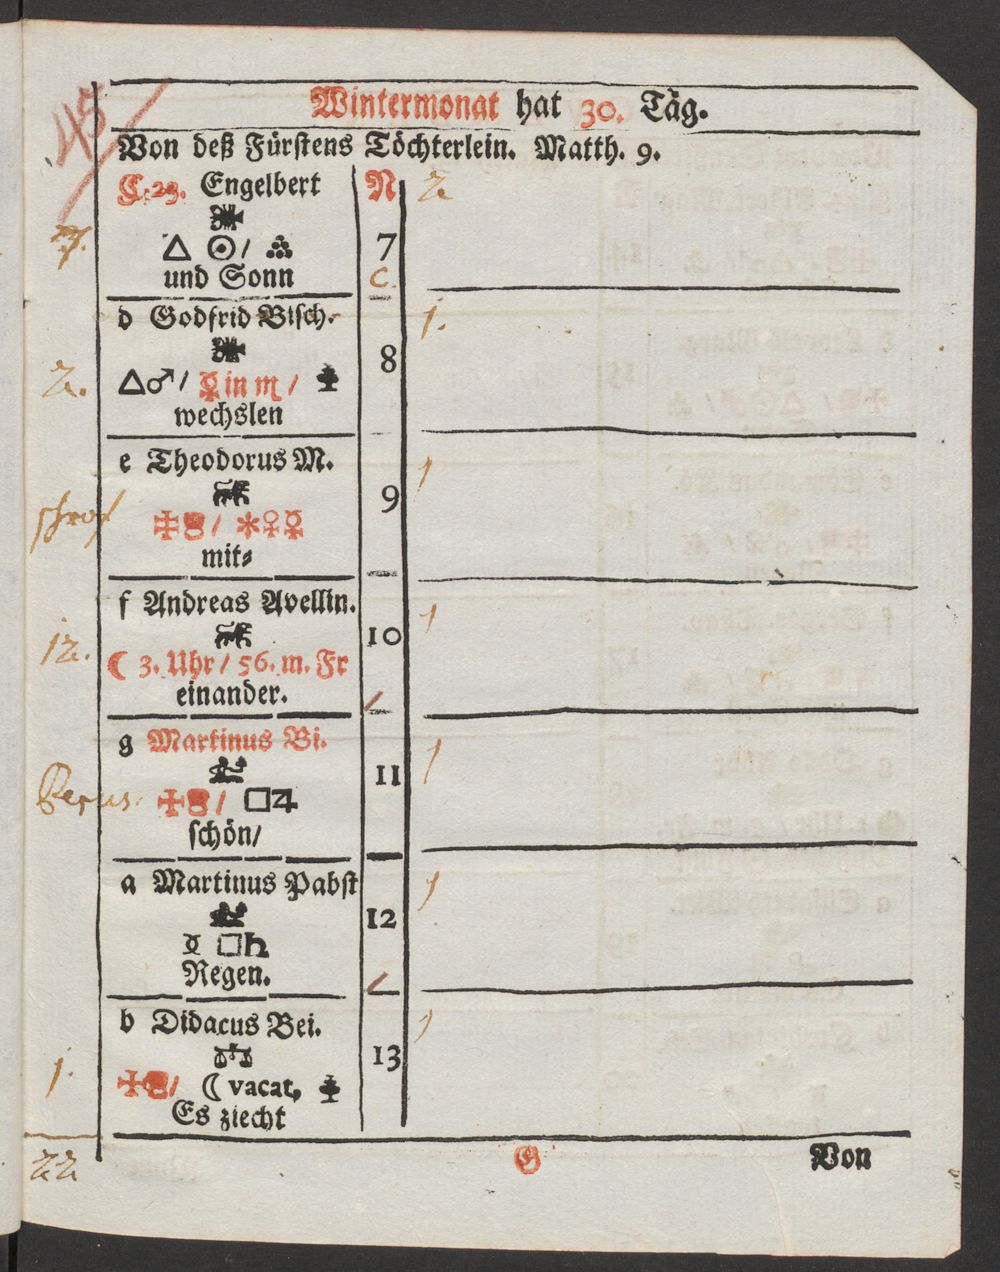 45
Wintermonat hat 30. Täg.
Von deß Fürstens Töchterlein. Matth. 9.
C. 23. Engelbert N 2
7.
△ ☉ / 7
und Sonn c.
d Godfrid Bisch. 1.
8
2. △♂ / ☿ in ♏ /
wechslen
e Theodorus M. 1
9
/ ✻♀☿
mit⸗
f Andreas Avellin. 1
10
12. ☾ 3. Uhr / 56. m. Fr
einander.
g Martinus Bi. 1
11
/ □♃
schön /
a Martinus Pabst 1
12
☿ □♄
Regen.
b Didacus Bei. 1
13
1. / ☾ vacat,
Es ziecht
22 G Von